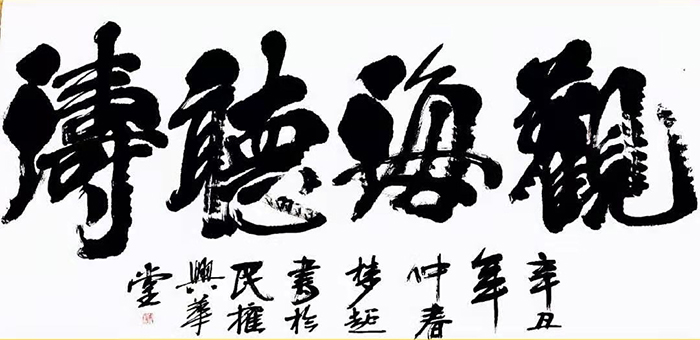 觀海聽濤
辛丑年仲春夢書於民權興華堂